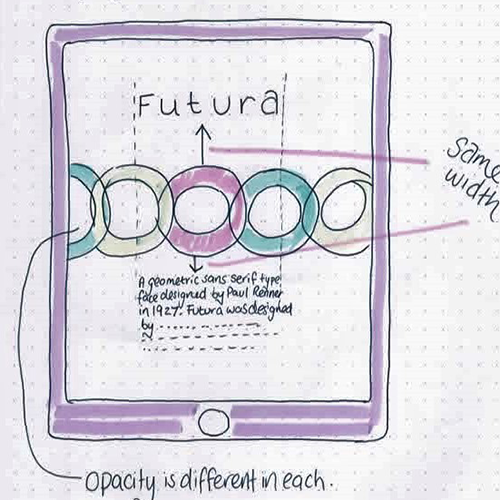 Futura
Same
width
A geometric sans serif type
face designed by Paul Renner
in 1927. Futura was designed
by
Opacity is different in each.